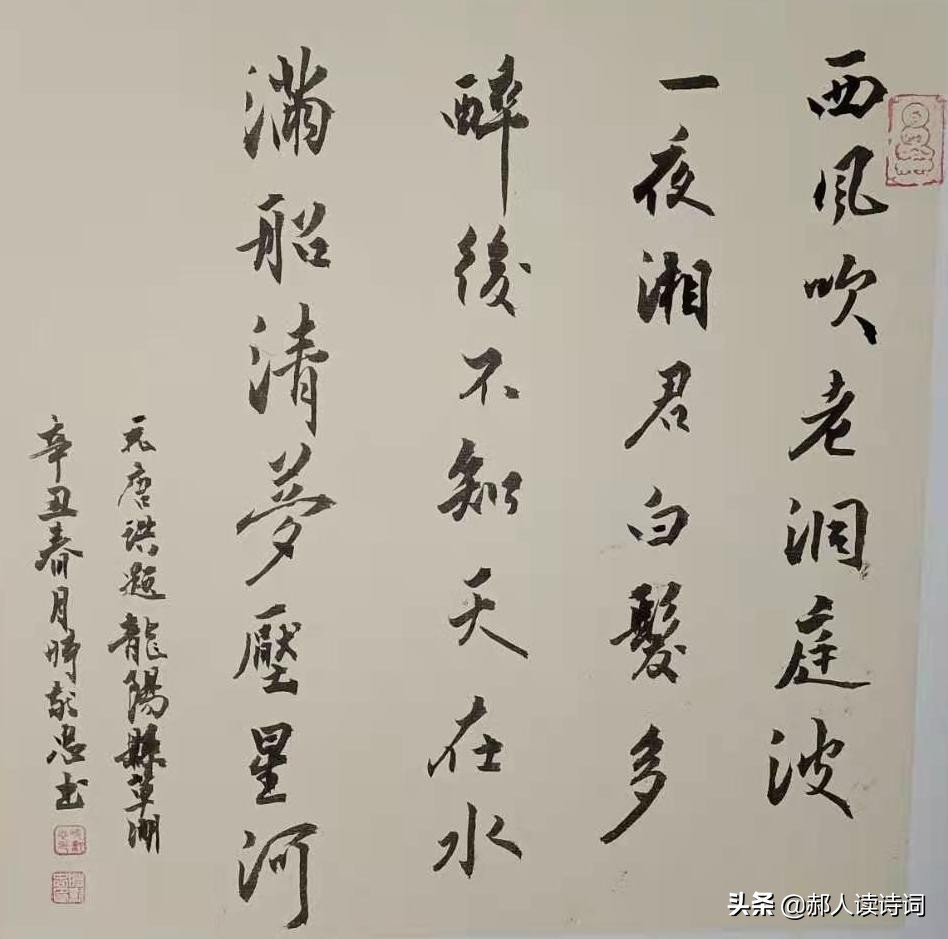 西風吹老洞庭波
一夜湘君白髮多
醉後不知天在水
滿船清夢壓星河
元唐珙题龍陽縣草湖
辛丑春月時敬忠书
头条 @郝人读诗词